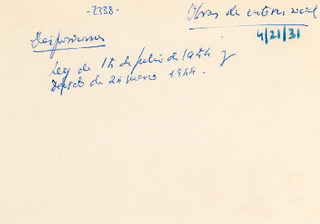 -2338-
Obras de interes social
4/21/31
Disposiciones
Ley de 15 de julio de 1954 y
Decreto de 24 marzo 1944.